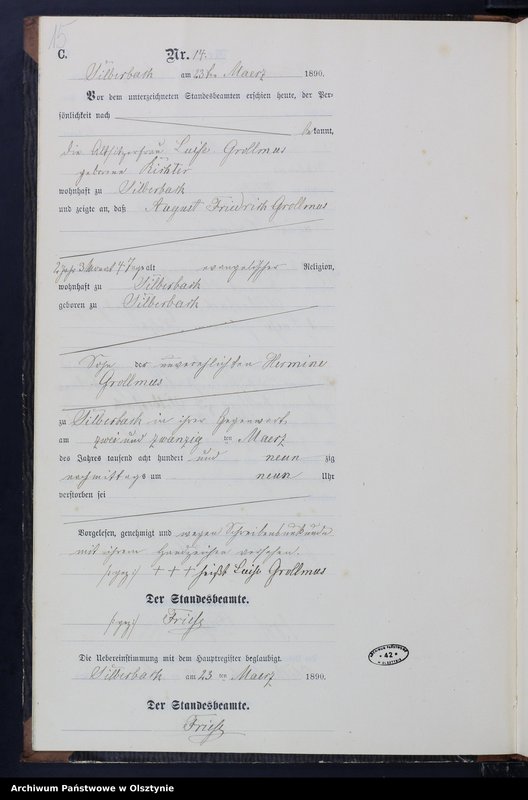 15
C.
Nr. 14.
Silberbach am 23ten Maerz 1890.
Vor dem unterzeichneten Standesbeamten erschien heute, der Per-
sönlichkeit nach
bekannt,
die Altsitzerfrau Luise Grollmus
geborene Richter
wohnhaft zu Silberbach
und zeigte an, daß August Friedrich Grollmus
2 Jahr 3 Monat 4 Tage alt evangelischer Religion,
wohnhaft zu Silberbach
geboren zu Silberbach
Sohn der unverehlichten Hermine
Grollmus
zu Silberbach in ihrer Gegenwart
am zwei und zwanzig ten Maerz
des Jahres tausend acht hundert und neun zig
nachmittags um neun Uhr
verstorben sei
Vorgelesen, genehmigt und wegen Schreibensunkunde
mit ihrem Handzeichen versehen.
/:gez:/ +++ heißt Luise Grollmus
Der Standesbeamte.
/:gez:/ Friese
Die Uebereinstimmung mit dem Hauptregister beglaubigt.
Silberbach am 23 ten Maerz 1890.
Der Standesbeamte.
Friese
ARCHIWUM PAŃSTWOWE
* 42 *
W OLSZTYNIE
Archiwum Państwowe w Olsztynie